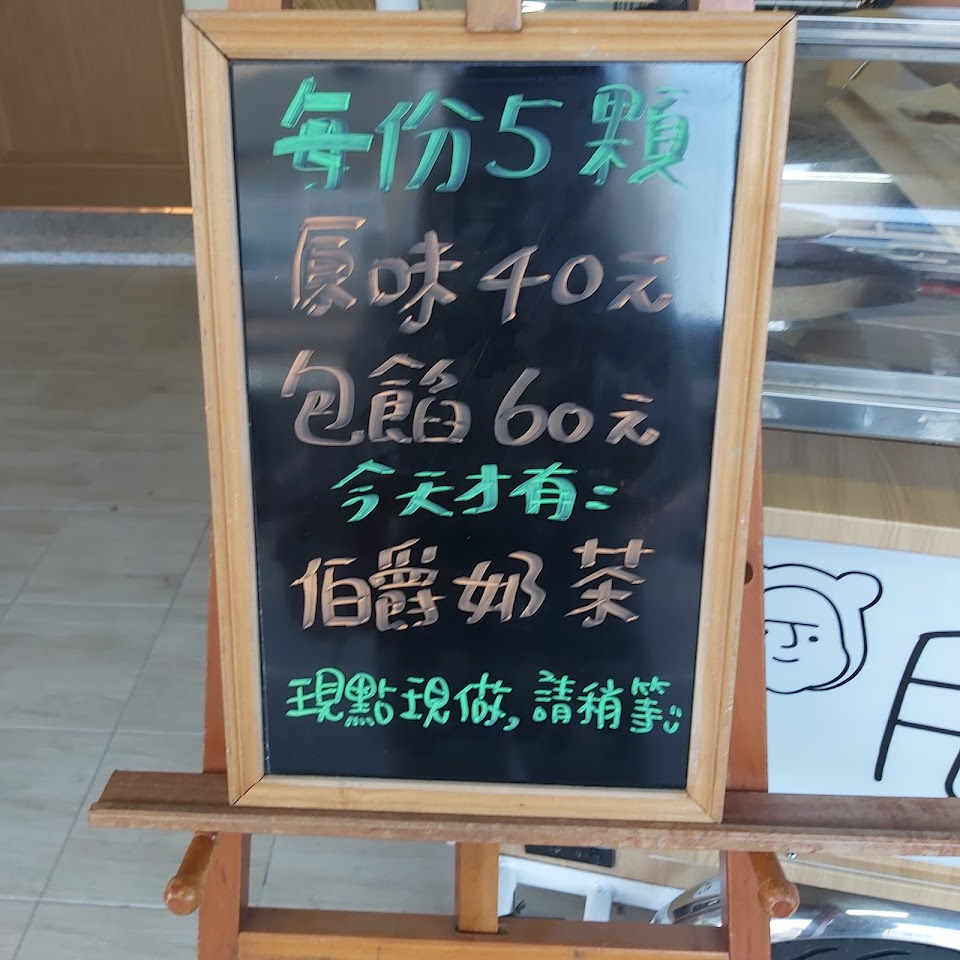 每份5顆
原味40元
包餡60元
今天才有:
伯爵奶茶
現點現做,請稍等:)